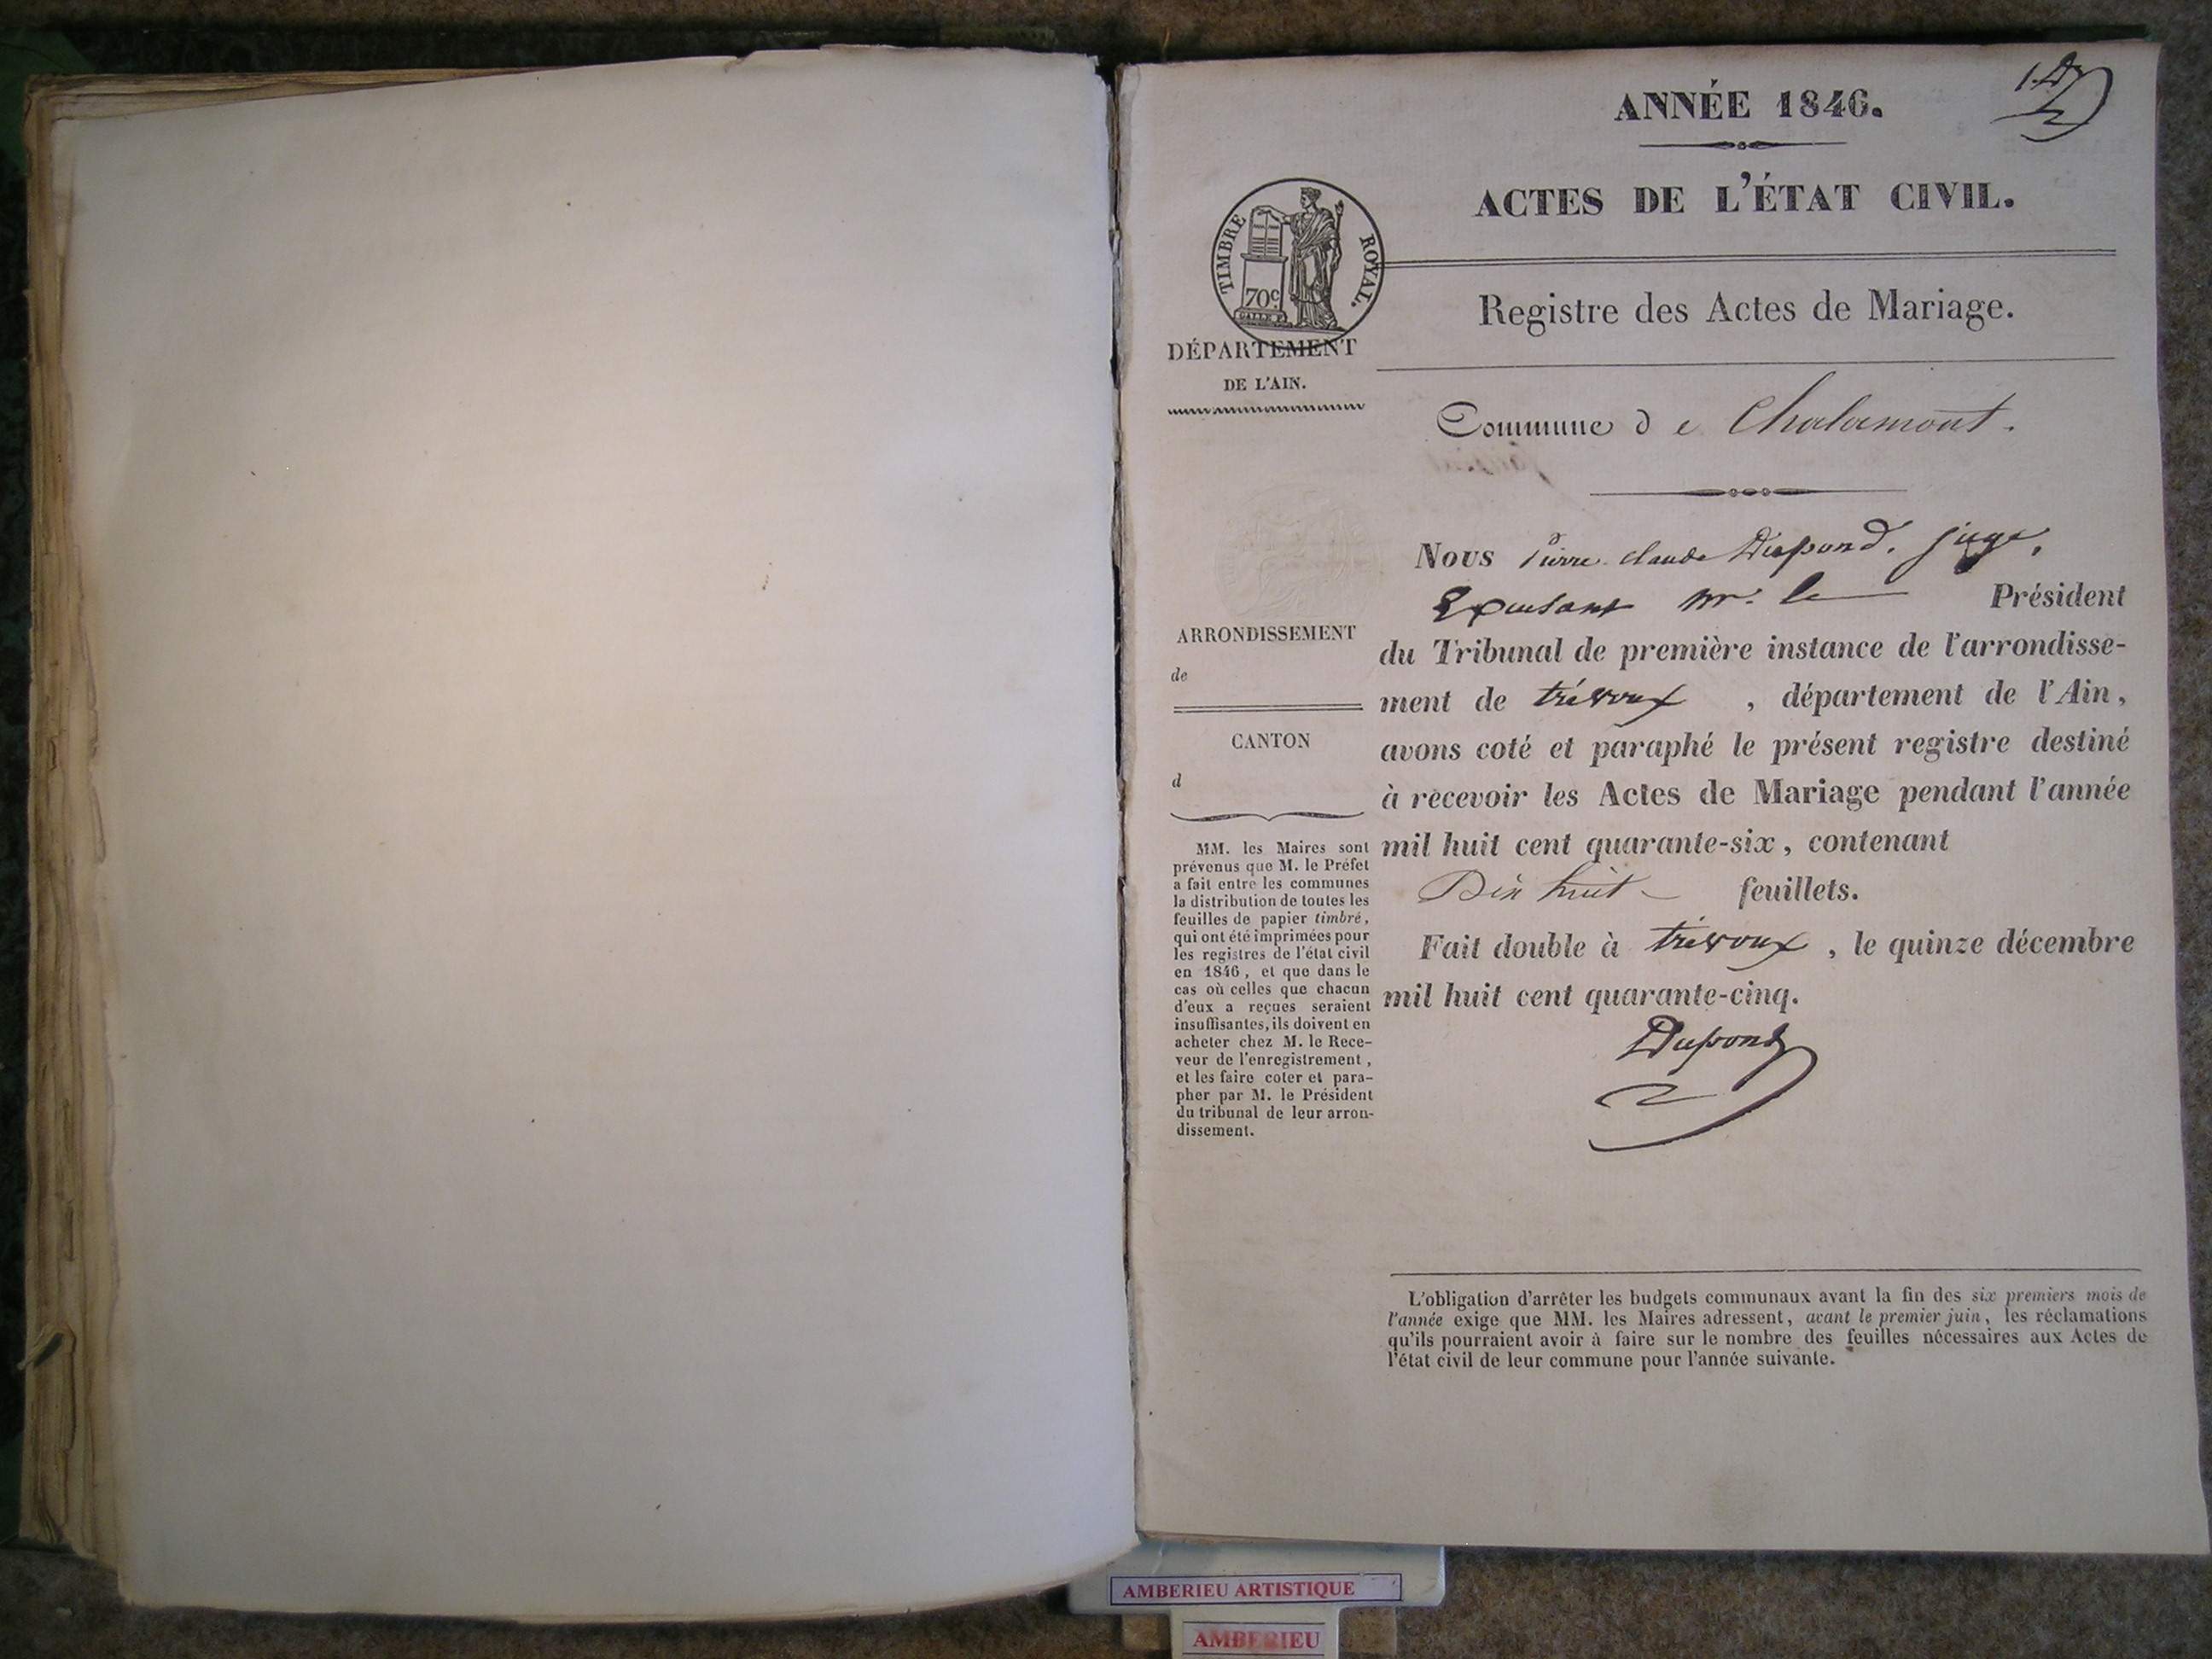 ANNÉE 1846.
ACTES DE L'ÉTAT CIVIL.
TIMBRE ROYAL.
70c
Registre des Actes de Mariage.
DÉPARTEMENT
DE L'AIN.
Commune de Chalamont.
Nous Pierre Claude Dupond, juge,
Excusant mr. le Président
du Tribunal de première instance de l'arrondisse-
ment de trévoux, département de l'Ain,
avons coté et paraphé le présent registre destiné
à recevoir les Actes de Mariage pendant l'année
mil huit cent quarante-six, contenant
Dix huit feuillets.
Fait double à trévoux, le quinze décembre
mil huit cent quarante-cinq.
Dupond
ARRONDISSEMENT
de
CANTON
d
MM. les Maires sont
prévenus que M. le Préfet
a fait entre les communes
la distribution de toutes les
feuilles de papier timbré,
qui ont été imprimées pour
les registres de l'état civil
en 1846, et que dans le
cas où celles que chacun
d'eux a reçues seraient
insuffisantes, ils doivent en
acheter chez M. le Rece-
veur de l'enregistrement,
et les faire coter et para-
pher par M. le Président
du tribunal de leur arron-
dissement.
L'obligation d'arrêter les budgets communaux avant la fin des six premiers mois de
l'année exige que MM. les Maires adressent, avant le premier juin, les réclamations
qu'ils pourraient avoir à faire sur le nombre des feuilles nécessaires aux Actes de
l'état civil de leur commune pour l'année suivante.
AMBERIEU ARTISTIQUE
AMBERIEU